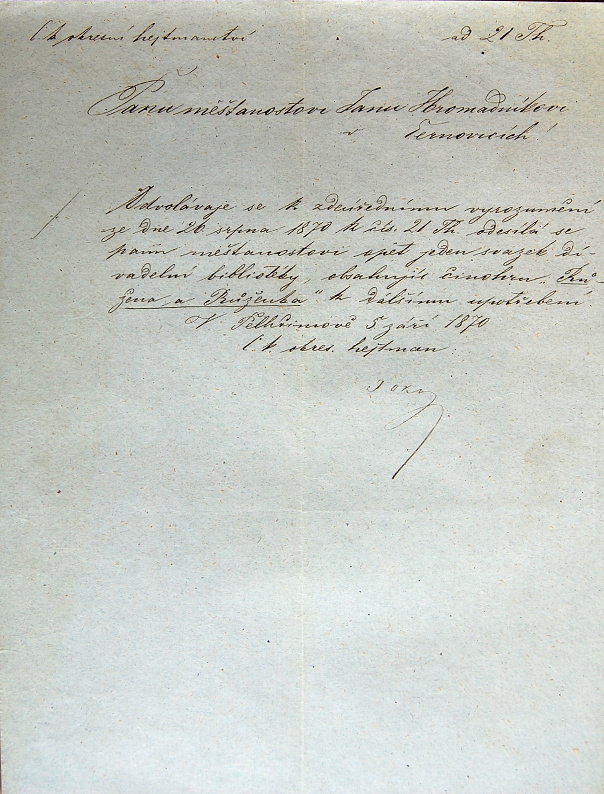 C. k. okresní hejtmanství
ad 21 Th.
Panu měšťanostovi Janu Hromadníkovi
v Černovicích!
Odvolávaje se k zdeúřednímu vyrozumění
ze dne 26 srpna 1870 k čís. 21 Th. odesílá se
panu měšťanostovi opět jeden svazek di-
vadelní bibliotéky, obsahujíc činohru „Rů-
žena a Růženka" k dalšímu upotřebení.
V Pelhřimově 5 září 1870
C. k. okres. hejtman: